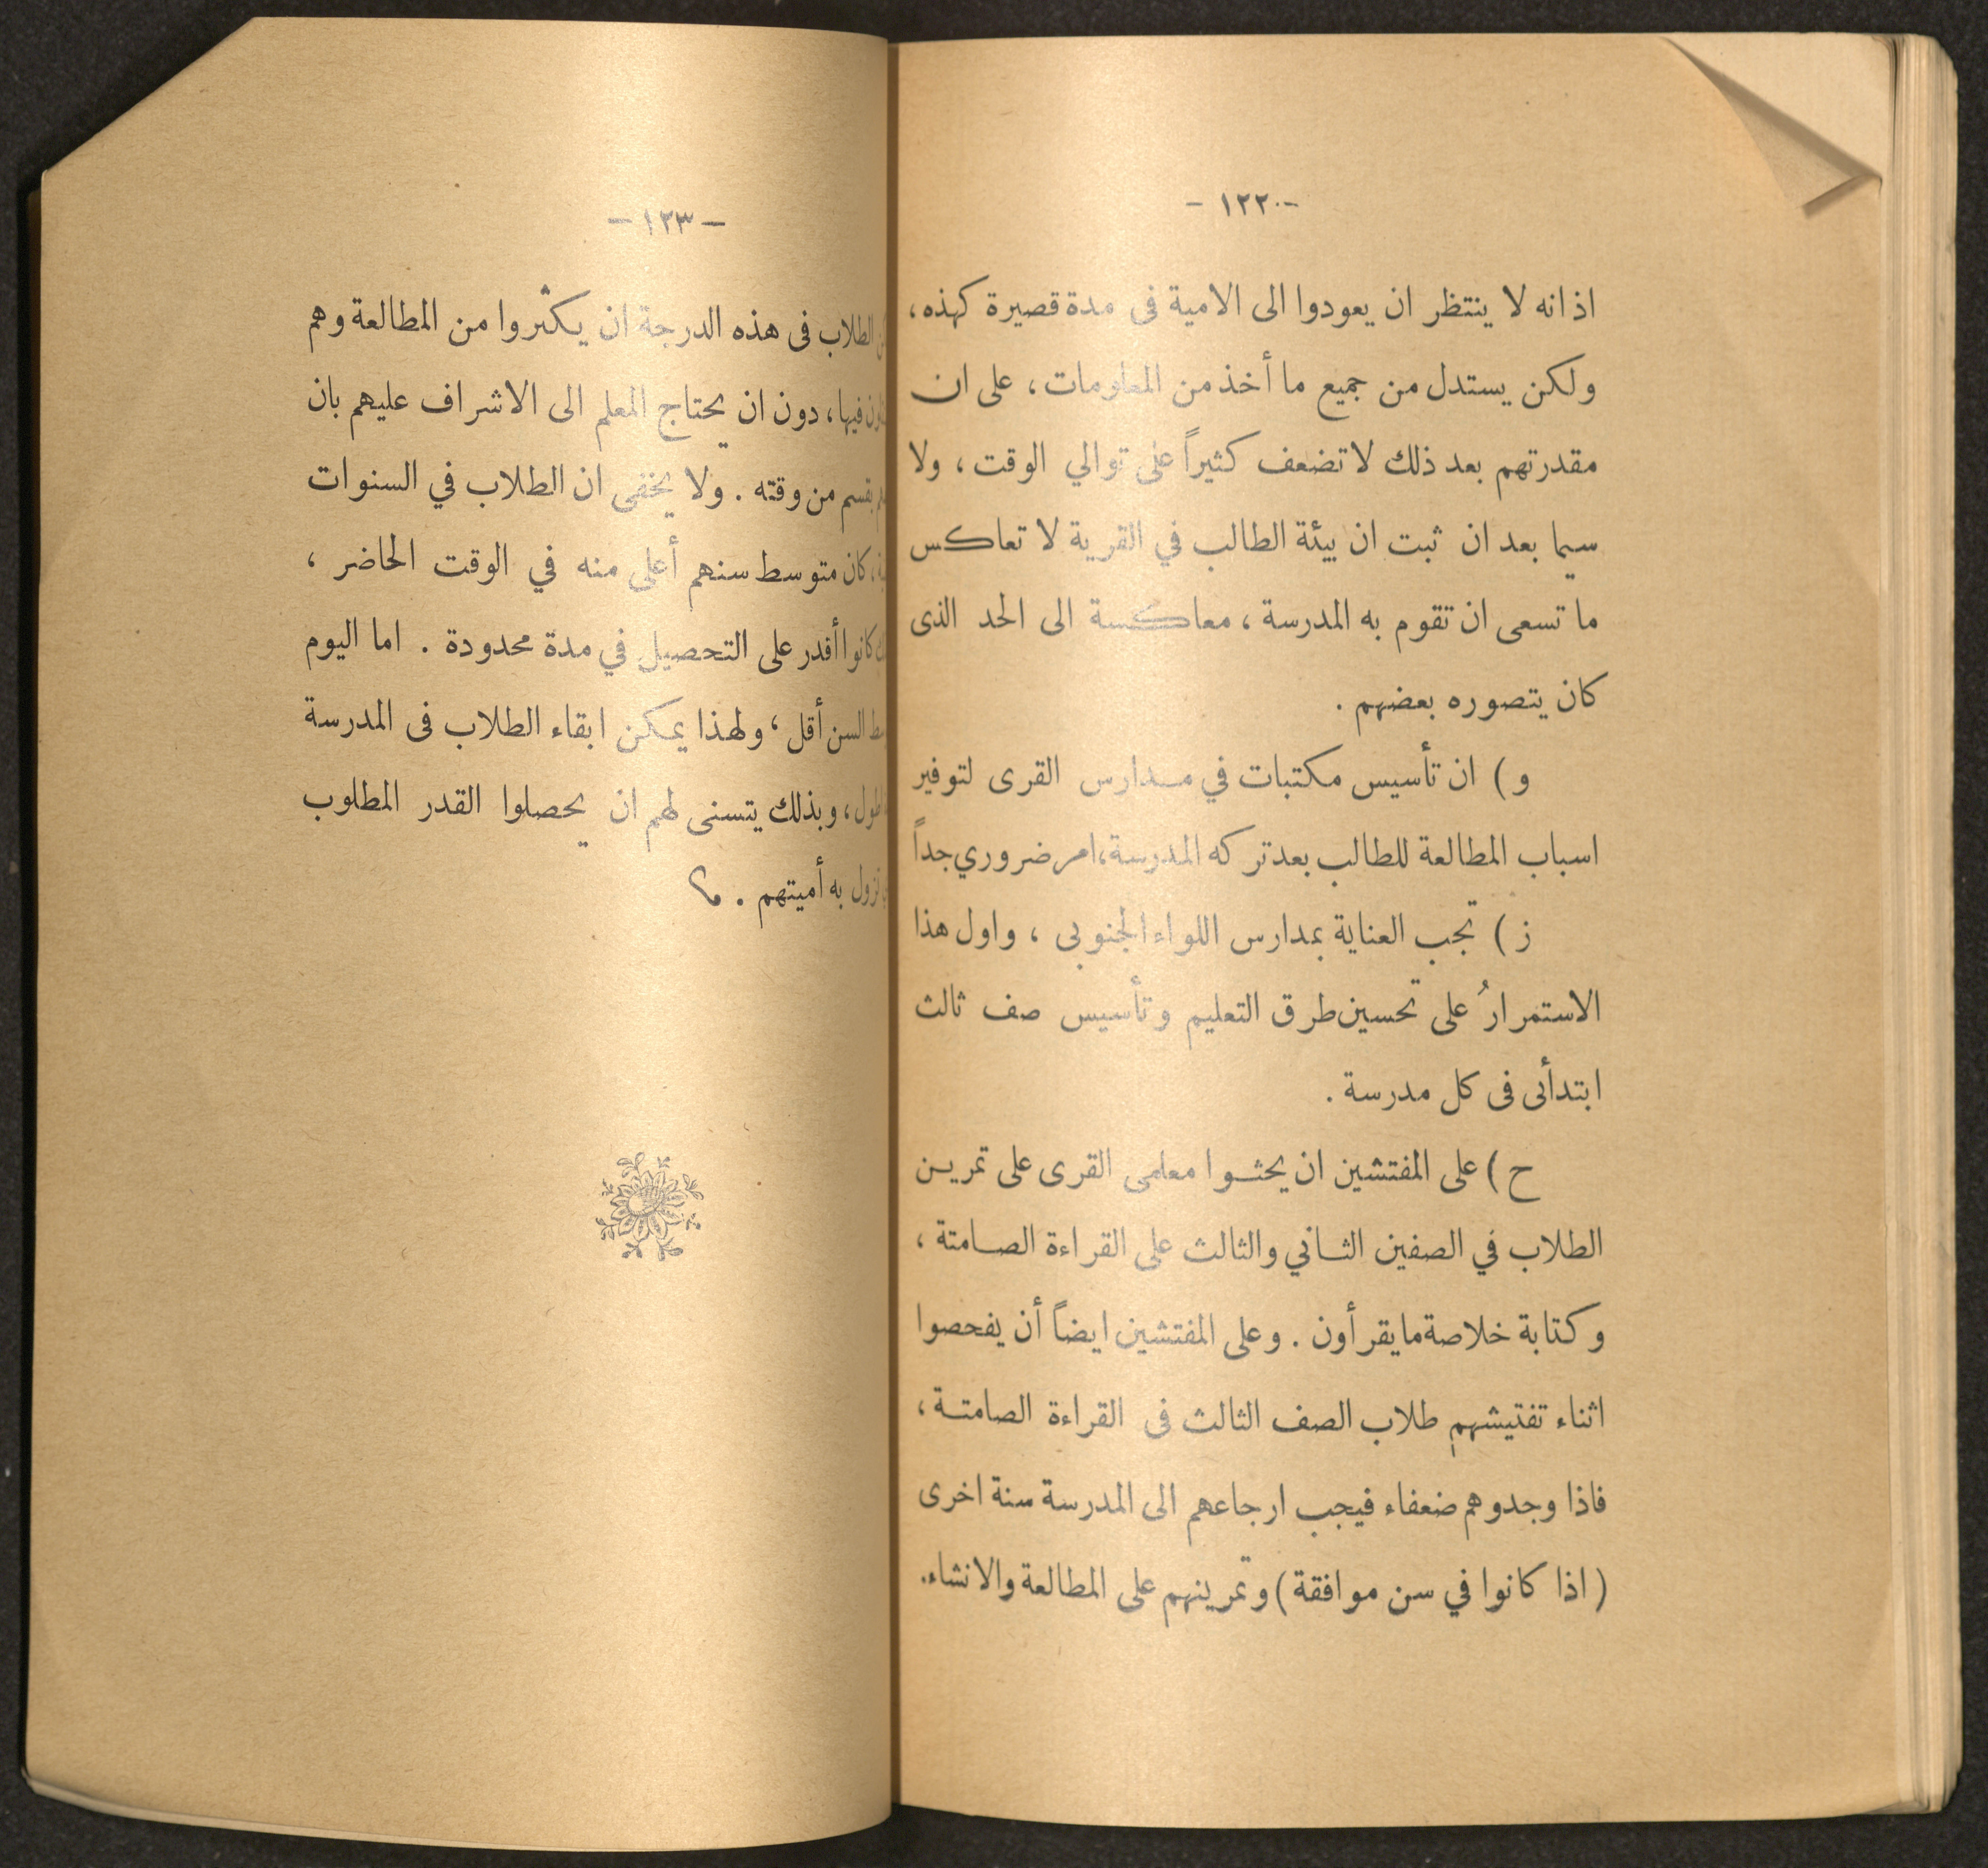 - ١٢٢ -
اذ انه لا ينتظر ان يعودوا الى الامية فى مدة قصيرة كهذه،
ولكن يستدل من جميع ما أخذ من المعلومات، على ان
مقدرتهم بعد ذلك لا تضعف كثيراً على توالي الوقت، ولا
سيما بعد ان ثبت ان بيئة الطالب في القرية لا تعاكس
ما تسعى ان تقوم به المدرسة، معاكسة الى الحد الذى
كان يتصوره بعضهم .
و) ان تأسيس مكتبات في مدارس القرى لتوفير
اسباب المطالعة للطالب بعد تركه المدرسة، امر ضروري جداً
ز) تجب العناية بمدارس اللواء الجنوبى، واول هذا
الاستمرارُ على تحسين طرق التعليم وتأسيس صف ثالث
ابتدأى فى كل مدرسة .
ح) على المفتشين ان يحثوا معلمى القرى على تمرين
الطلاب في الصفين الثاني والثالث على القراءة الصامتة،
وكتابة خلاصة ما يقرأون . وعلى المفتشين ايضاً أن يفحصوا
اثناء تفتيشهم طلاب الصف الثالث فى القراءة الصامتة،
فاذا وجدوهم ضعفاء فيجب ارجاعهم الى المدرسة سنة اخرى
(اذا كانوا في سن موافقة) وتمرينهم على المطالعة والانشاء.
- ١٢٣ -
الطلاب فى هذه الدرجة ان يكثروا من المطالعة وهم
فيها، دون ان يحتاج المعلم الى الاشراف عليهم بان
بقسم من وقته . ولا يخفى ان الطلاب في السنوات
كان متوسط سنهم أعلى منه في الوقت الحاضر،
كانوا أقدر على التحصيل في مدة محدودة . اما اليوم
السن أقل، ولهذا يمكن ابقاء الطلاب فى المدرسة
وبذلك يتسنى لهم ان يحصلوا القدر المطلوب
تزول به أميتهم .